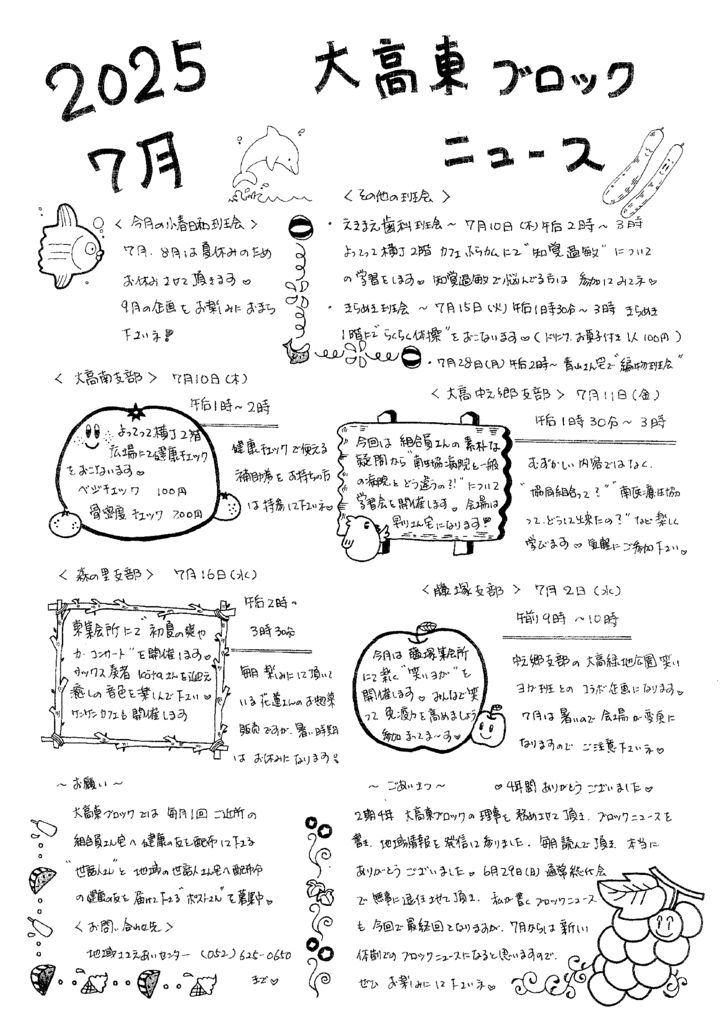 2025
7月
大高東ブロック
ニュース
< 今月の小春日和班会 >
7月、8月は夏休みのため
お休みさせて頂きます♡
9月の企画をお楽しみにおまち
下さいネ!!
< その他の班会 >
・えきまえ歯科班会～ 7月10日(木)午后2時～3時
よってって横丁2階 カフェぷらかんにて"知覚過敏"について
の学習をします。知覚過敏で悩んでる方は 参加してみてネ♡
・きらめき班会 ～ 7月15日(火)午后1時30分～3時 きらめき
1階にて"らくらく体操"をおこないます♡(ドリンク、お菓子付き1人100円)
●7月28日(月)午后2時～青山さん宅で"編物班会"
< 大高南支部 > 7月10日(木)
午后1時～2時
よってって横丁2階
広場にて健康チェック
をおこないます♡
ベジチェック 100円
骨密度チェック 200円
健康チェックで使える
補助券をお持ちの方
は持参して下さいネ♡
< 大高中之郷支部 > 7月11日(金)
午后1時30分～3時
今回は組合員さんの素朴な
疑問から"南生協病院と一般
の病院とどう違うの?!"について
学習会を開催します。会場は
さん宅になります!!
むずかしい内容ではなく、
"協同組合って?" "南医療生協
って、どうして出来たの?"など楽しく
学びます♡気軽にご参加下さい♡
< 森の里支部 > 7月16日(水)
午后2時～
3時30分
東集会所にて"初夏の爽や
か コンサート"を開催します。
サックス奏者 さんを迎え
癒しの音色を楽しんで下さい♡
ケンケンカフェも開催します
毎月 楽しみにして頂いて
いる 花蓮さんのお惣菜
販売ですが、暑い時期
は お休みになります!
< 藤塚支部 > 7月2日(水)
午前9時～10時
今月は 藤塚集会所
にて楽しく"笑いヨガ"を
開催します♡みんなで笑
って 免疫力を高めましょう
参加まってま～す♡
中之郷支部の大高緑地公園笑い
ヨガ班とのコラボ企画になります。
7月は暑いので会場が変更に
なりますので ご注意下さいネ♡
～ お願い ～
大高東ブロックでは 毎月1回 ご近所の
組合員さん宅へ健康の友を配布して下さる
"世話人さん"と 地域の世話人さん宅へ配布分
の健康の友を届けて下さる"ポストさん"を募集中♡
< お問い合わせ先 >
地域ささえあいセンター (052)625-0650
まで♡
～ ごあいさつ ～ ♡4年間ありがとうございました♡
2期4年 大高東ブロックの理事を務めさせて頂き、ブロックニュースを
書き、地域情報を発信して参りました。毎月読んで頂き 本当に
ありがとうございました♡ 6月29日(日)通常総代会
で 無事に退任させて頂き、私が書くブロックニュース
も今回で最終回となりますが、7月からは新しい
体制でのブロックニュースになると思いますので、
ぜひ お楽しみにして下さいネ♡